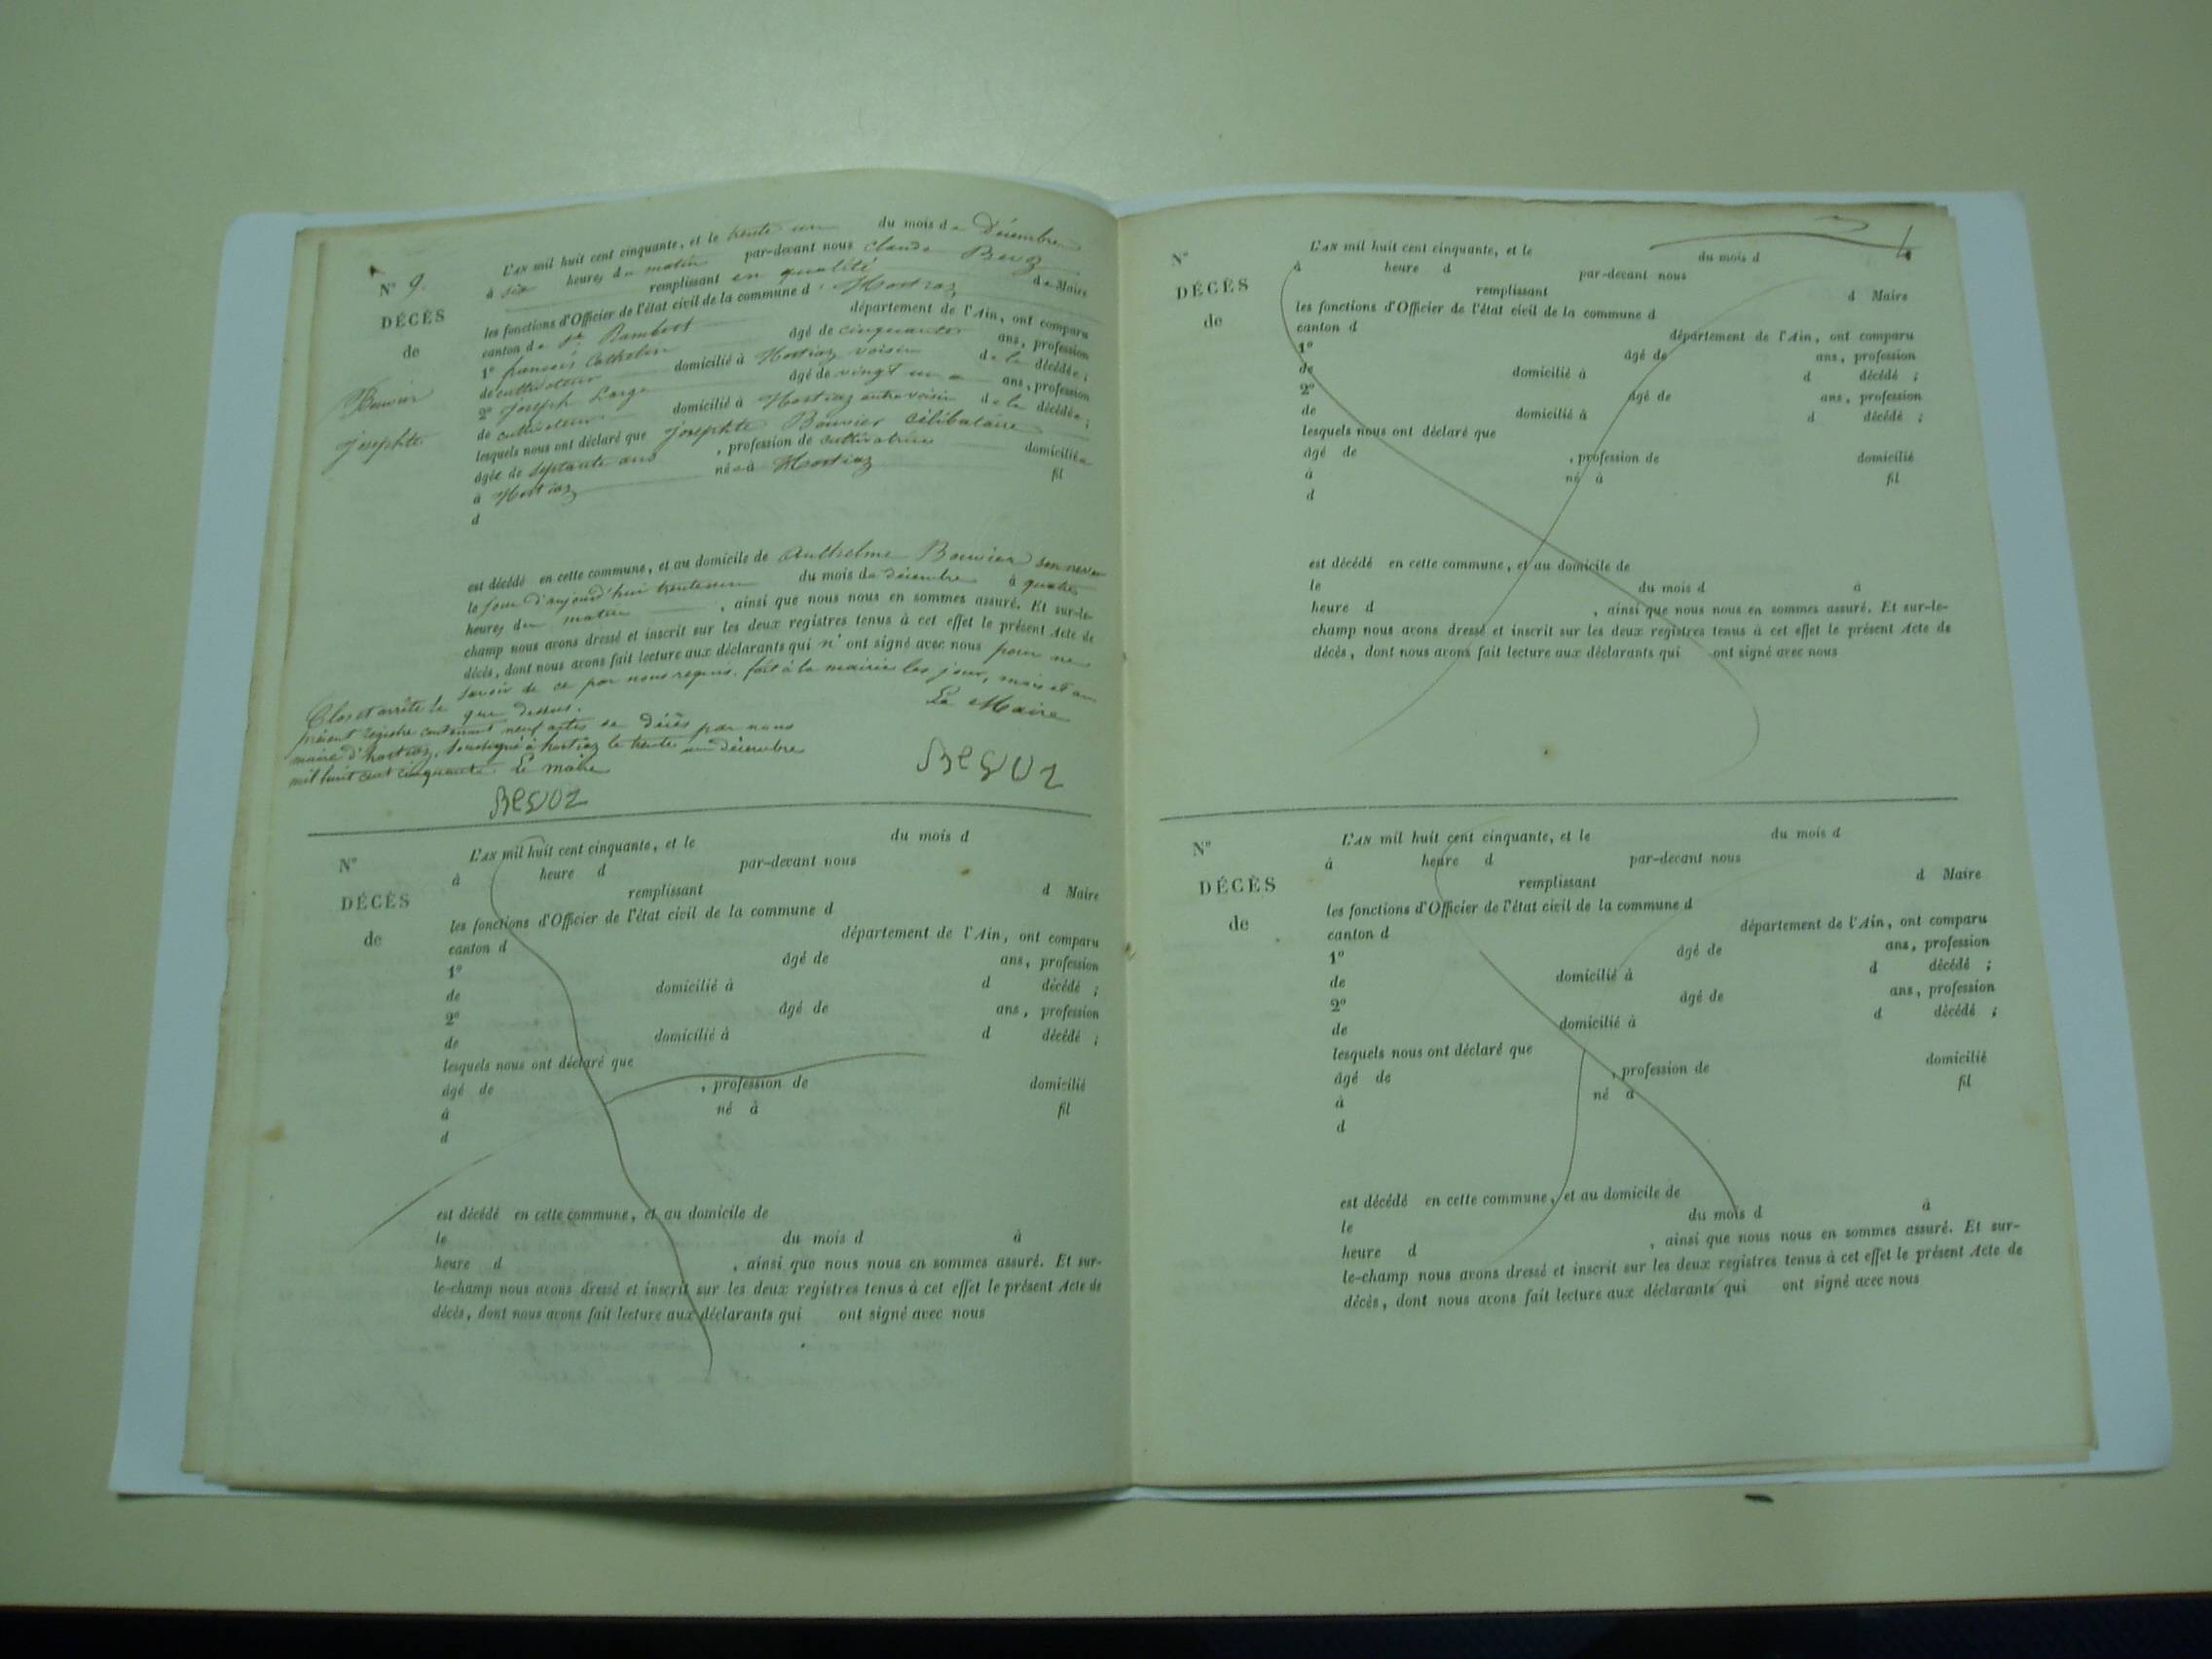 N° 9.
DÉCÈS
de
Bouvier
Josephte
L'AN mil huit cent cinquante, et le trente un du mois de Décembre
à six heures du matin par-devant nous Claude
remplissant en qualité de Maire
les fonctions d'Officier de l'état civil de la commune d'Hostiaz
canton de St Rambert département de l'Ain, ont comparu
1° françois Cathelin âgé de cinquante ans, profession
de cultivateur domicilié à Hostiaz voisin de la décédée ;
2° Joseph Large âgé de vingt un ans, profession
de cultivateur domicilié à Hostiaz autre voisin de la décédée ;
lesquels nous ont déclaré que Josephte Bouvier célibataire
âgée de septante ans , profession de cultivatrice domiciliée
à Hostiaz née à Hostiaz fil
d
est décédé en cette commune, et au domicile de Anthelme Bouvier son neveu
le jour d'aujourd'hui trente un du mois de décembre à quatre
heures du matin , ainsi que nous nous en sommes assuré. Et sur-le-
champ nous avons dressé et inscrit sur les deux registres tenus à cet effet le présent Acte de
décès, dont nous avons fait lecture aux déclarants qui n'ont signé avec nous pour ne
savoir de ce par nous requis. fait à la mairie les jour, mois et an
que dessus. Le Maire
Clos et arrêté le
présent registre contenant neuf actes de décès par nous
maire d'hostiaz, soussigné à hostiaz le trente un décembre
mil huit cent cinquante. Le maire
N°
DÉCÈS
de
L'AN mil huit cent cinquante, et le du mois d
à heure d par-devant nous
remplissant d Maire
les fonctions d'Officier de l'état civil de la commune d
canton d département de l'Ain, ont comparu
1° âgé de ans, profession
de domicilié à d décédé ;
2° âgé de ans, profession
de domicilié à d décédé ;
lesquels nous ont déclaré que
âgé de , profession de domicilié
à né à fil
d
est décédé en cette commune, et au domicile de
le du mois d à
heure d , ainsi que nous nous en sommes assuré. Et sur-
le-champ nous avons dressé et inscrit sur les deux registres tenus à cet effet le présent Acte de
décès, dont nous avons fait lecture aux déclarants qui ont signé avec nous
4
N°
DÉCÈS
de
L'AN mil huit cent cinquante, et le du mois d
à heure d par-devant nous
remplissant d Maire
les fonctions d'Officier de l'état civil de la commune d
canton d département de l'Ain, ont comparu
1° âgé de ans, profession
de domicilié à d décédé ;
2° âgé de ans, profession
de domicilié à d décédé ;
lesquels nous ont déclaré que
âgé de , profession de domicilié
à né à fil
d
est décédé en cette commune, et au domicile de
le du mois d à
heure d , ainsi que nous nous en sommes assuré. Et sur-le-
champ nous avons dressé et inscrit sur les deux registres tenus à cet effet le présent Acte de
décès, dont nous avons fait lecture aux déclarants qui ont signé avec nous
N°
DÉCÈS
de
L'AN mil huit cent cinquante, et le du mois d
à heure d par-devant nous
remplissant d Maire
les fonctions d'Officier de l'état civil de la commune d
canton d département de l'Ain, ont comparu
1° âgé de ans, profession
de domicilié à d décédé ;
2° âgé de ans, profession
de domicilié à d décédé ;
lesquels nous ont déclaré que
âgé de , profession de domicilié
à né à fil
d
est décédé en cette commune, et au domicile de
le du mois d à
heure d , ainsi que nous nous en sommes assuré. Et sur-
le-champ nous avons dressé et inscrit sur les deux registres tenus à cet effet le présent Acte de
décès, dont nous avons fait lecture aux déclarants qui ont signé avec nous